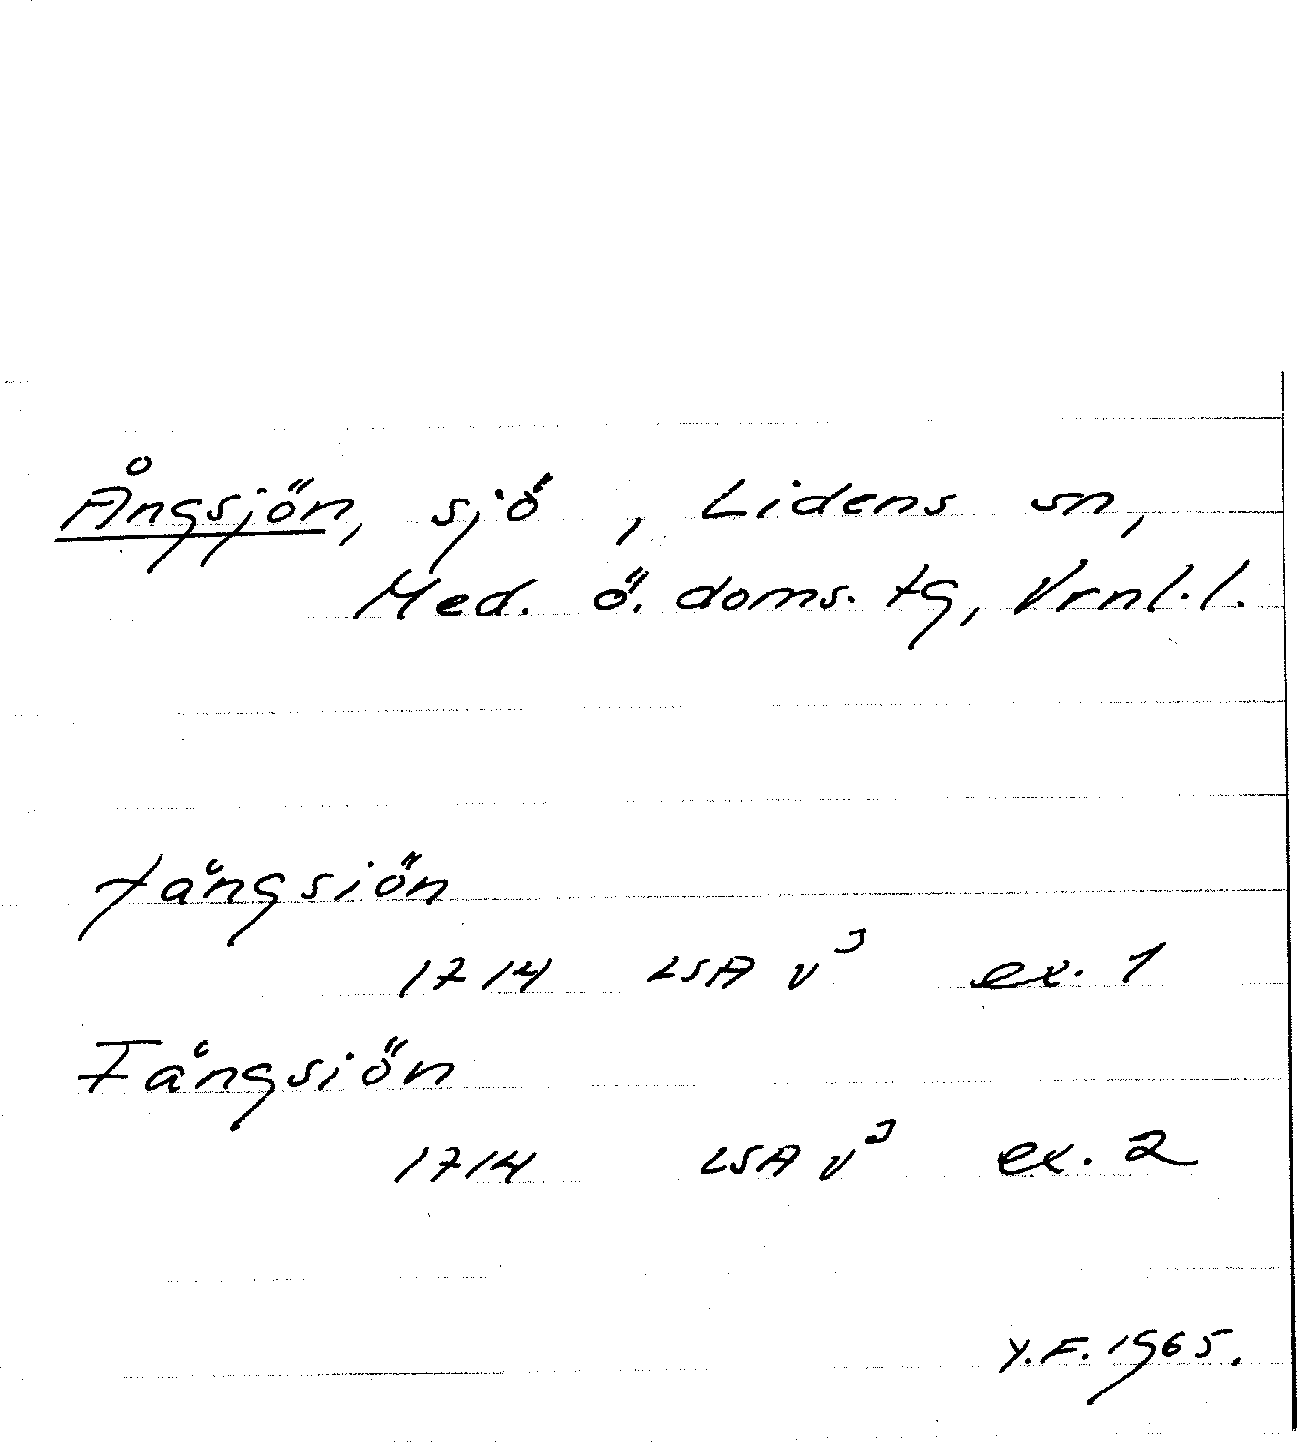 Ångsjön, sjö, Lidens sn,
Med. ö. doms. tg, Vrnl. l.
fångsiön
1714 LSA v³ ex. 1
Fångsiön
1714 LSA v³ ex. 2
Y.F. 1965.